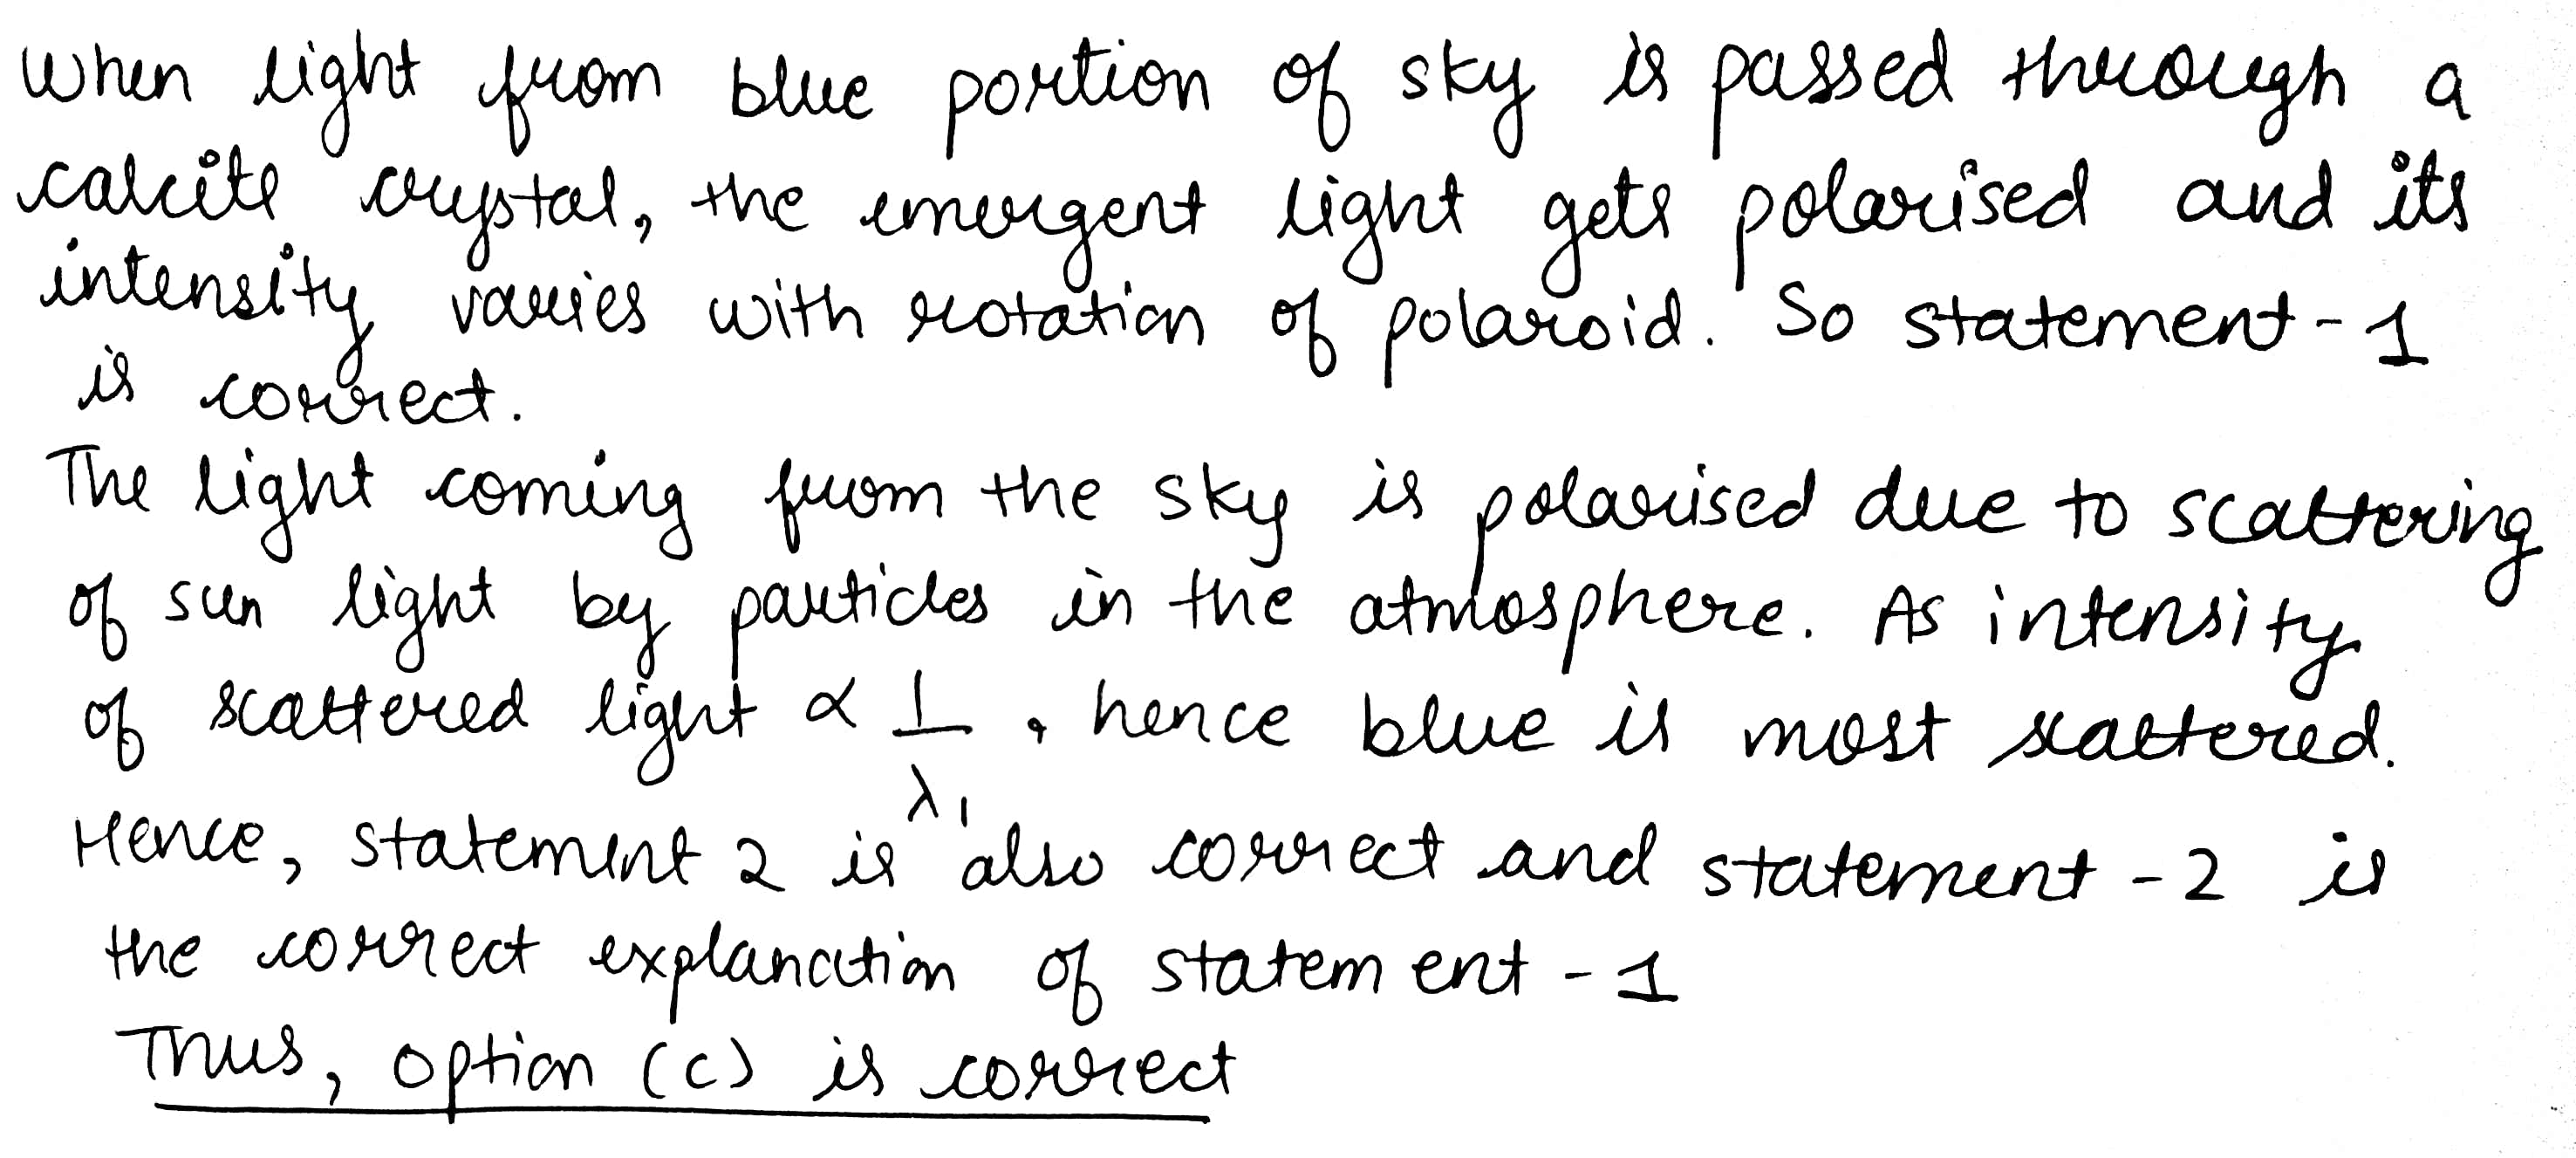 When light from blue portion of sky is passed through a
calcite crystal, the emergent light gets polarised and its
intensity varies with rotation of polaroid. So statement - 1
is correct.
The light coming from the sky is polarised due to scattering
of sun light by particles in the atmosphere. As intensity
of scattered light ∝ 1/λ₁, hence blue is most scattered.
Hence, statement 2 is also correct and statement - 2 is
the correct explanation of statement - 1
Thus, option (c) is correct